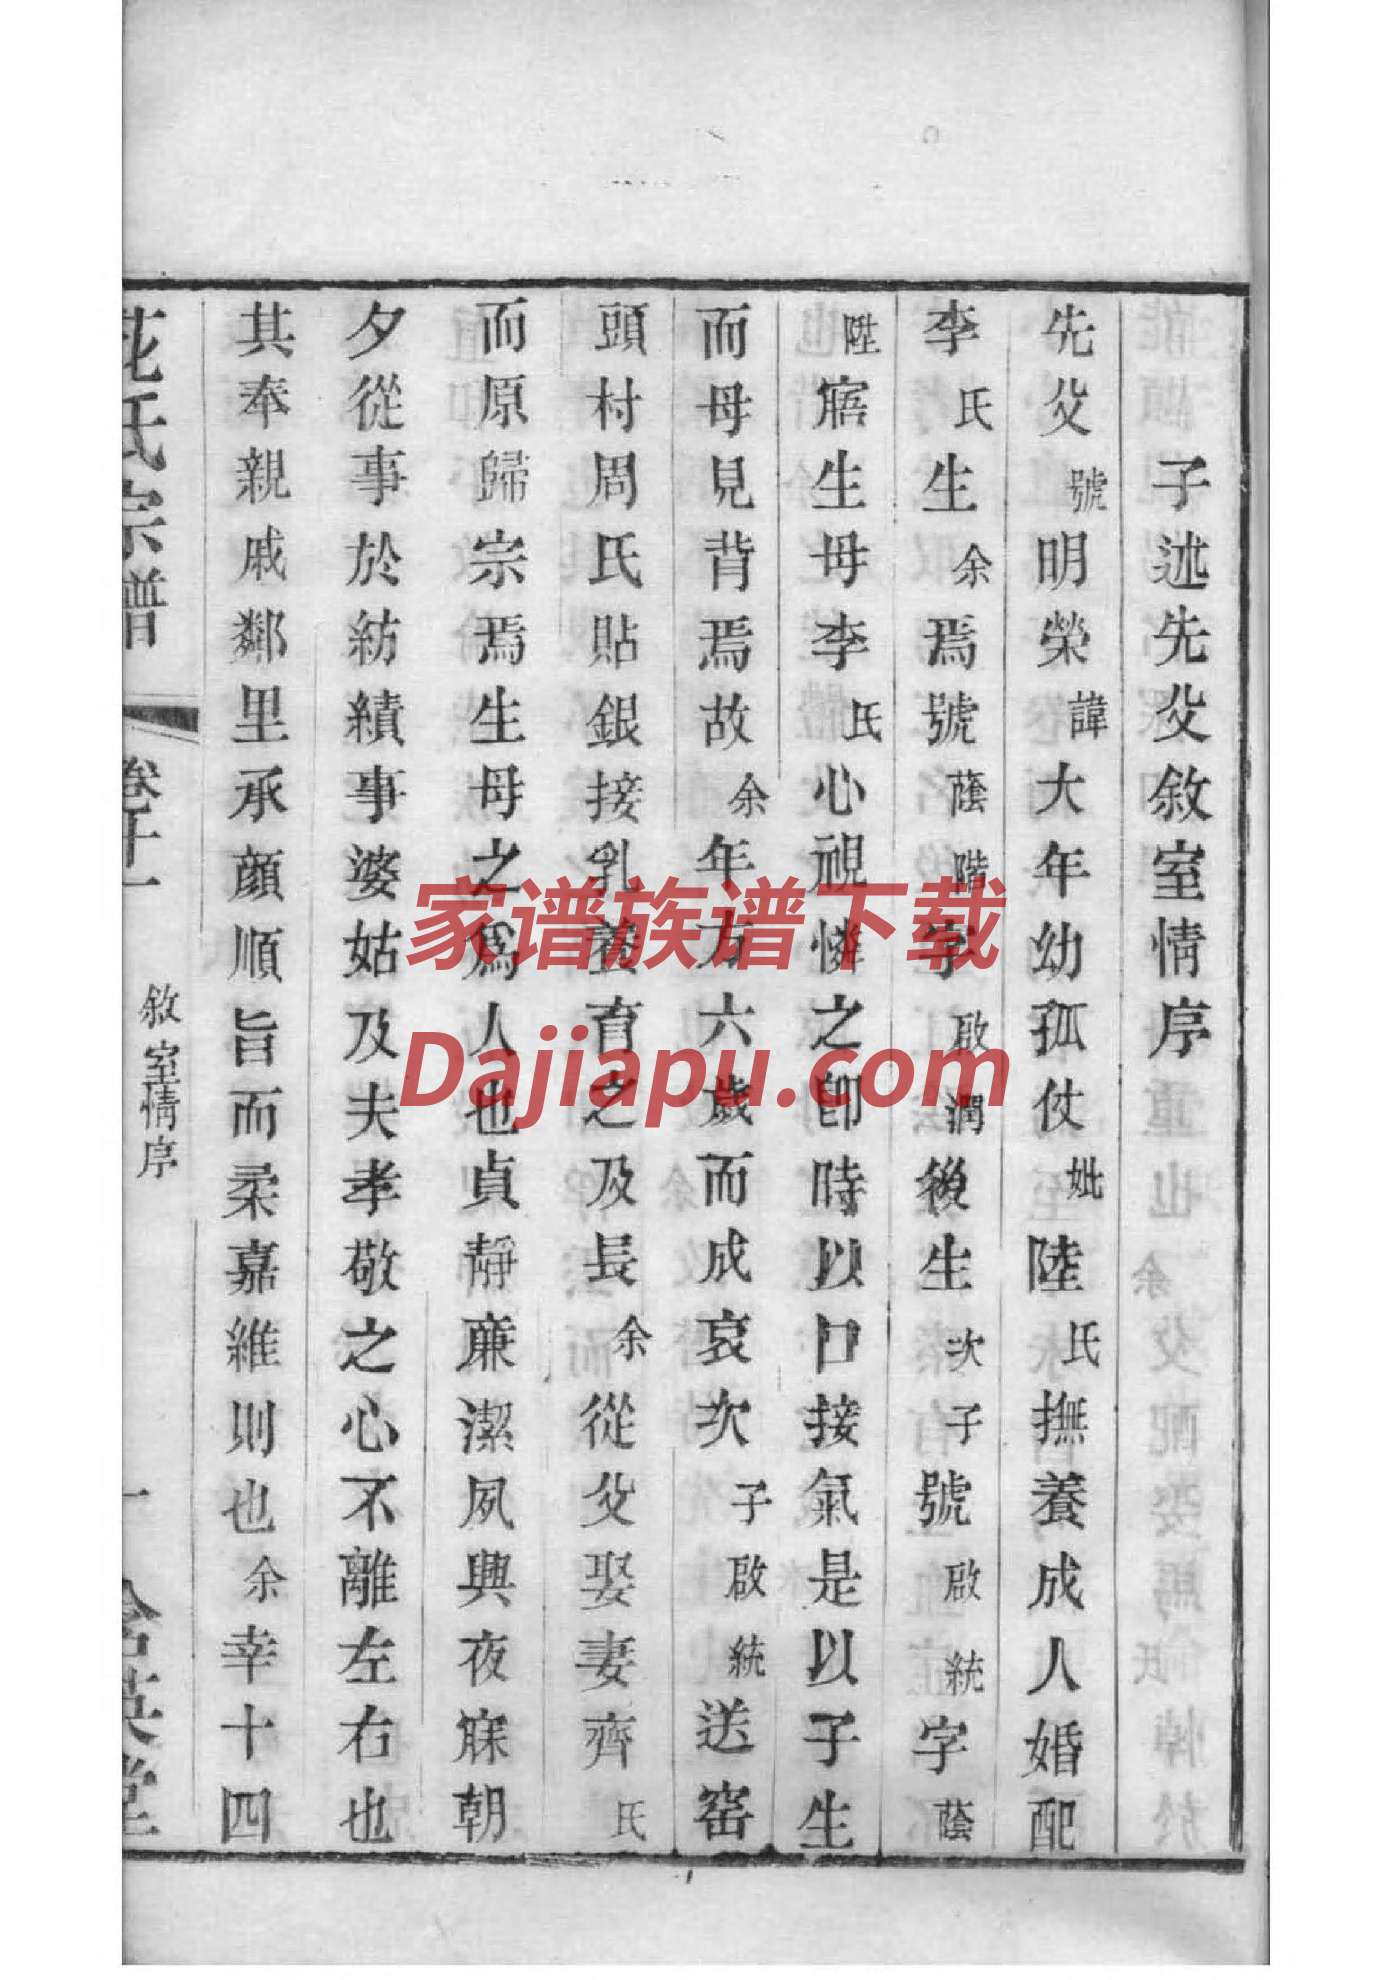 子述先父敘室情序
先父號明榮諱大年幼孤仗妣陸氏撫養成人婚配
李氏生余焉號蔭階字啟潤後生次子號啟統字蔭
陞寤生母李氏心視憐之卽時以口接氣是以子生
而母見背焉故余年方六歲而成哀次子啟統送窑
頭村周氏貼銀接乳養育之及長余從父娶妻齊氏
而原歸宗焉生母之爲人也貞靜亷潔夙興夜寐朝
夕從事於紡績事婆姑及夫孝敬之心不離左右也
其奉親戚鄰里承顏順旨而柔嘉維則也余幸十四
花氏宗譜
卷十一
敘室情序
一
英堂
家谱族谱下载
Dajiapu.com